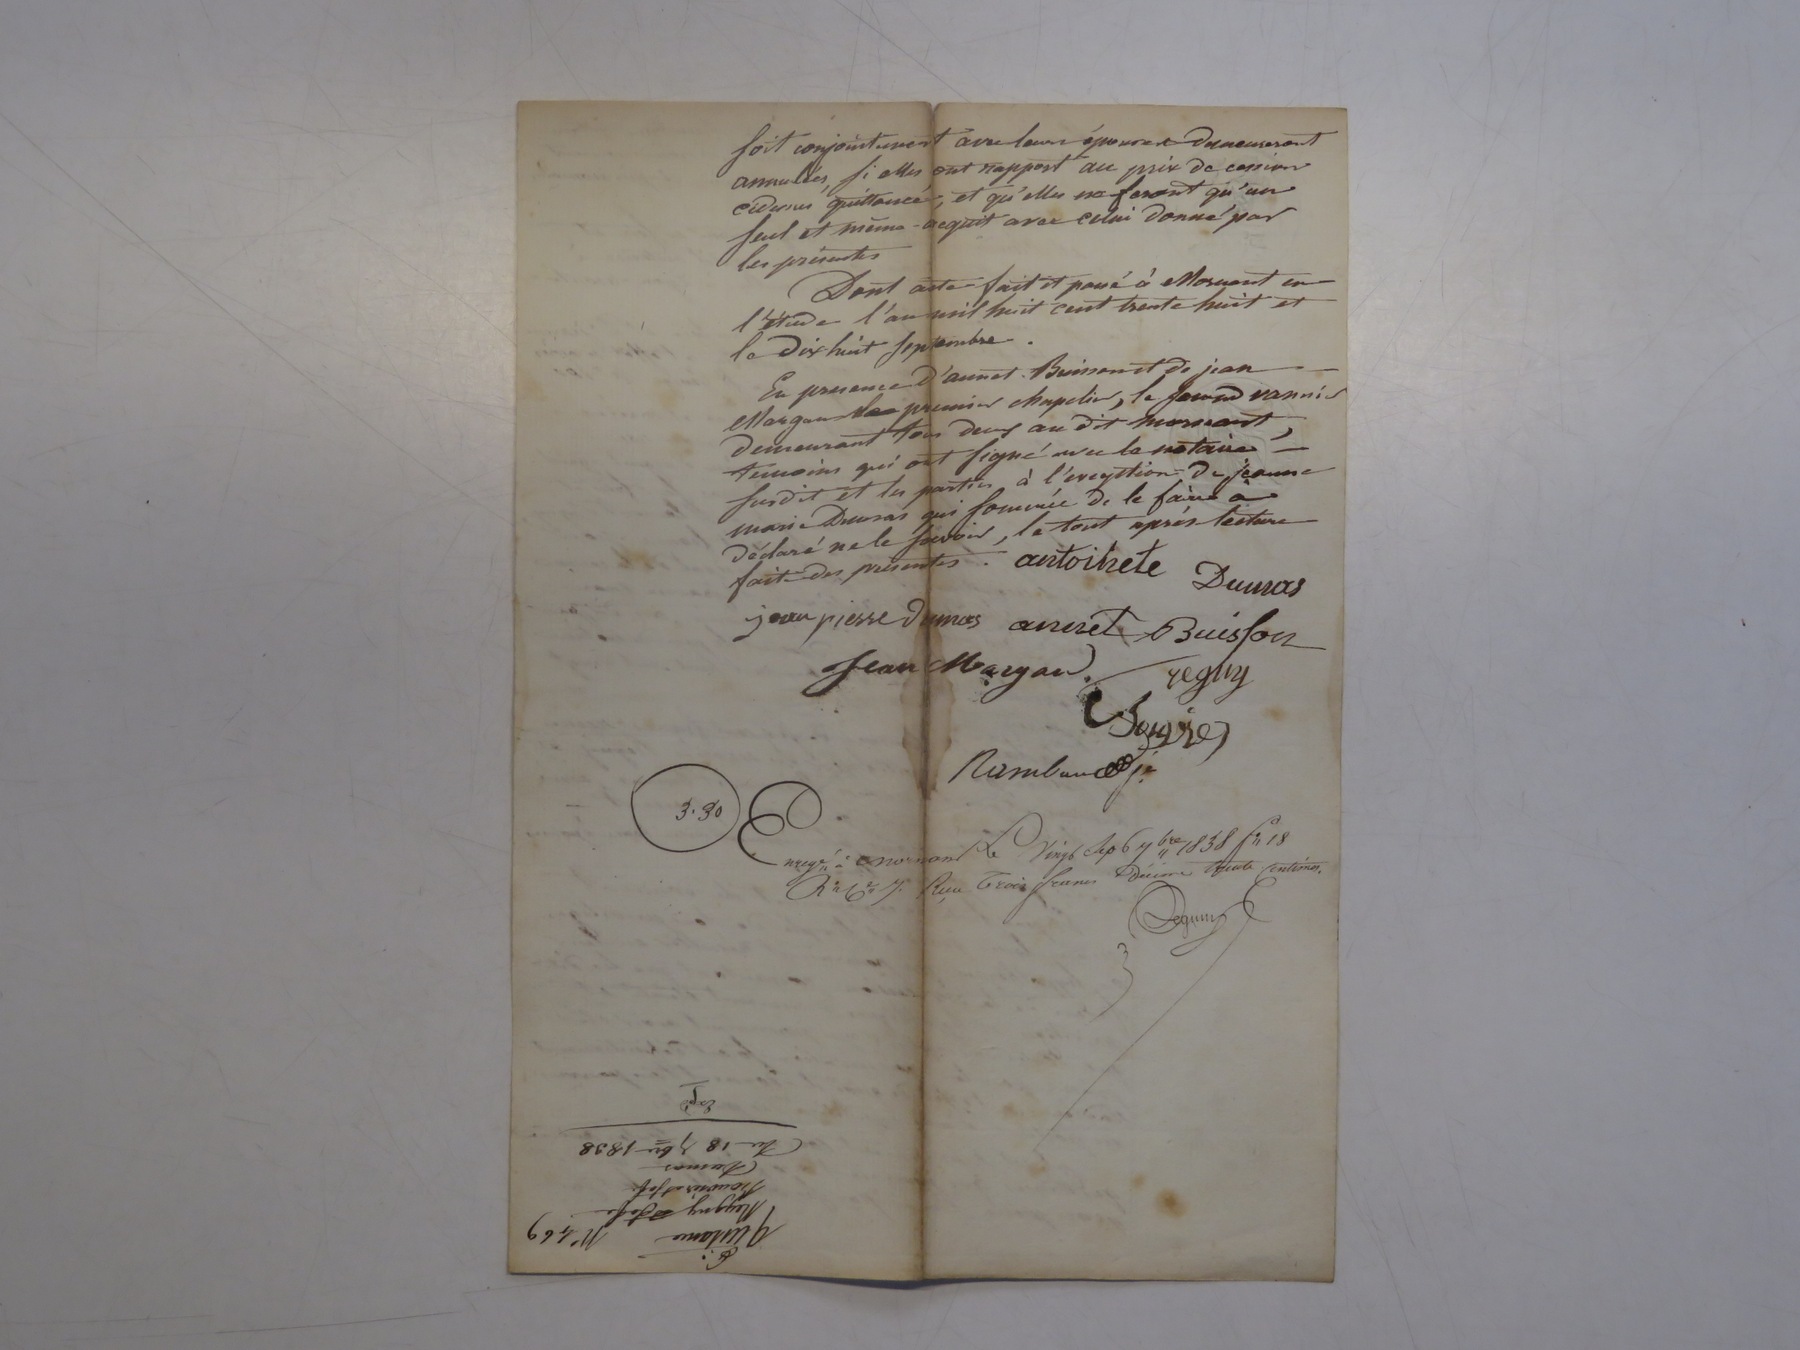 soit conjointement avec leurs épouses demeureront
annulées, si elles ont rapport au prix de cession
cidessus quittancé, et qu'elles ne feront qu'un
seul et même acquit avec celui donné par
les présentes
Dont acte fait et passé à Mornant en
l'étude l'an mil huit cent trente huit et
le dix huit septembre.
En présence d'annet Buisson et de jean
Margan le premier chapelier, le second vannier
demeurant tous deux au dit mornant,
témoins qui ont signé avec le notaire
susdit et les parties à l'exception de jeanne
marie Dumas qui sommée de le faire a
déclaré ne le savoir, le tout après lecture
faite des présentes. antoinete Dumas
jean pierre Dumas annet Buisson
Jean Margan. reguy
Rambaud
3.30
Enregé à mornant Le Vingt Sept 7bre 1838 f° 18
Reçu Trois francs Décime trente Centimes.
Expé
Du 18 7bre 1838
Dumas
Quittance N° 469